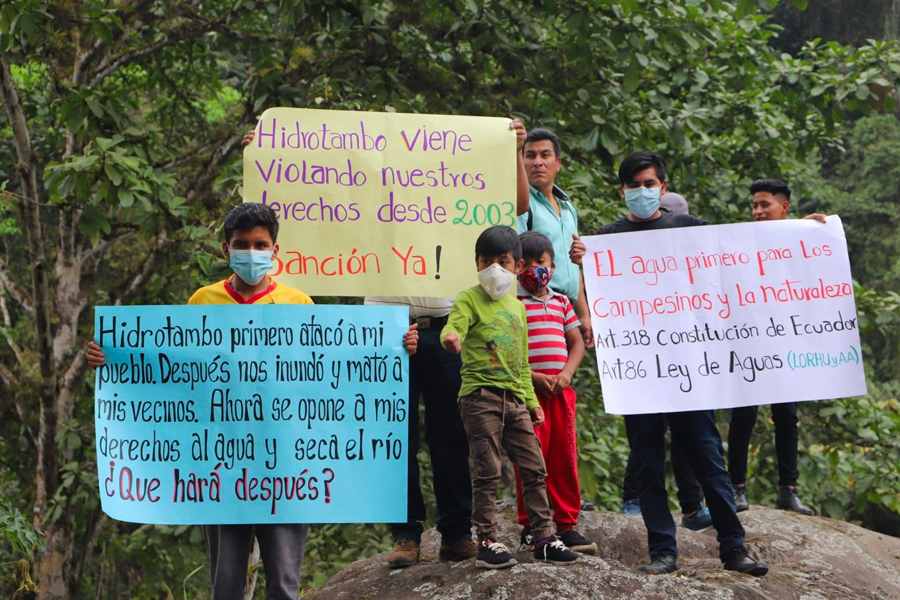 Hidrotambo viene
violando nuestros
derechos desde 2003
Sanción Ya!
Hidrotambo primero atacó a mi
pueblo. Después nos inundó y mató a
mis vecinos. Ahora se opone a mis
derechos al agua y seca el río
¿Que hará después?
EL agua primero para los
Campesinos y la naturaleza
Art. 318 Constitución de Ecuador
Art 86 Ley de Aguas (LORHUyAA)